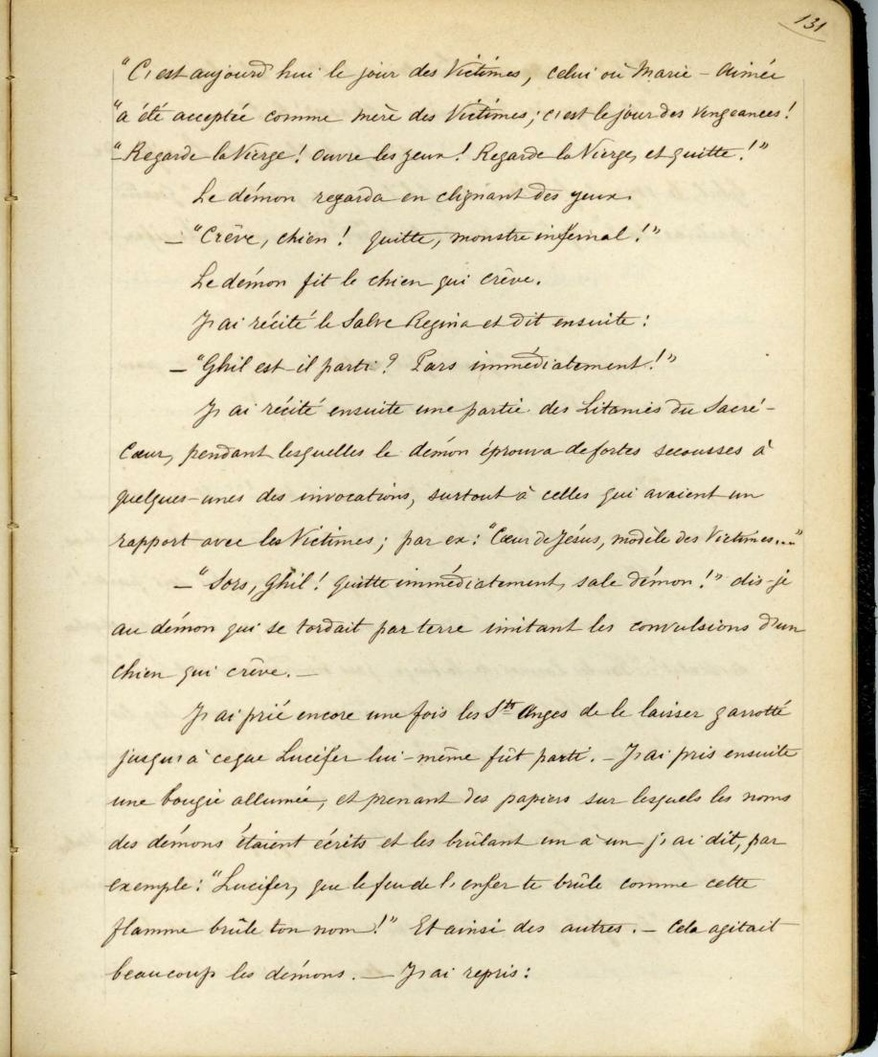 131
"C'est aujourd'hui le jour des Victimes, celui où Marie-Aimée
"a été acceptée comme mère des Victimes; c'est le jour des vengeances!
"Regarde la Vierge! Ouvre les yeux! Regarde la Vierge, et quitte!"
Le démon regarda en clignant des yeux.
— "Crève, chien! quitte, monstre infernal!"
Le démon fit le chien qui crève.
J'ai récité le Salve Regina et dit ensuite:
— "Ghil est-il parti? Pars immédiatement!"
J'ai récité ensuite une partie des Litanies du Sacré-
Cœur, pendant lesquelles le démon éprouva de fortes secousses à
quelques-unes des invocations, surtout à celles qui avaient un
rapport avec les Victimes; par ex: "Cœur de Jésus, modèle des Victimes..."
— "Sors, Ghil! quitte immédiatement, sale démon!" dis-je
au démon qui se tordait par terre imitant les convulsions d'un
chien qui crève. —
J'ai prié encore une fois les Sts Anges de le laisser garrotté
jusqu'à ce que Lucifer lui-même fût parti. — J'ai pris ensuite
une bougie allumée, et prenant des papiers sur lesquels les noms
des démons étaient écrits et les brûlant un à un j'ai dit, par
exemple: "Lucifer, que le feu de l'enfer te brûle comme cette
flamme brûle ton nom!" Et ainsi des autres. — Cela agitait
beaucoup les démons. — J'ai repris: